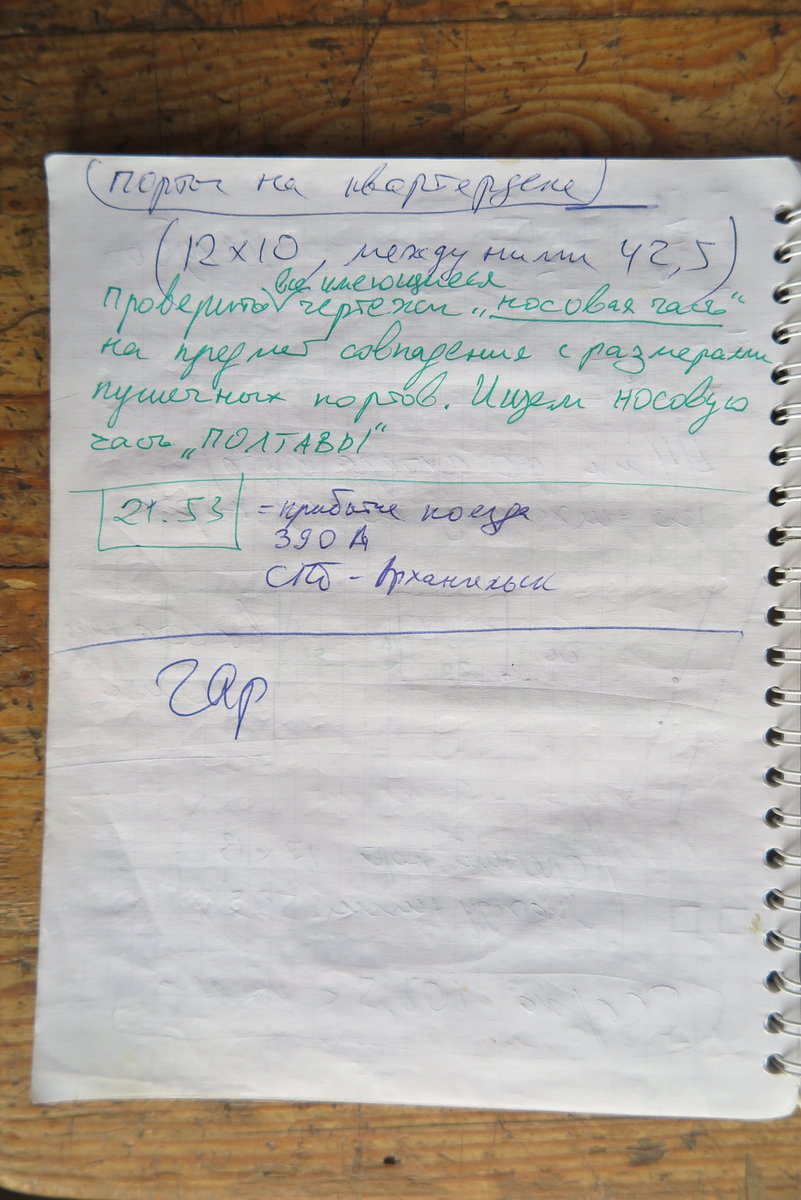 (порты на квартердеке)
(12х10, между ними 42,5)
все имеющиеся
Проверить чертежи „носовая часть“
на предмет совпадения с размерами
пушечных портов. Ищем носовую
часть „ПОЛТАВЫ“
21.53 = прибытие поезда
390 А
СПб - Архангельск
чар